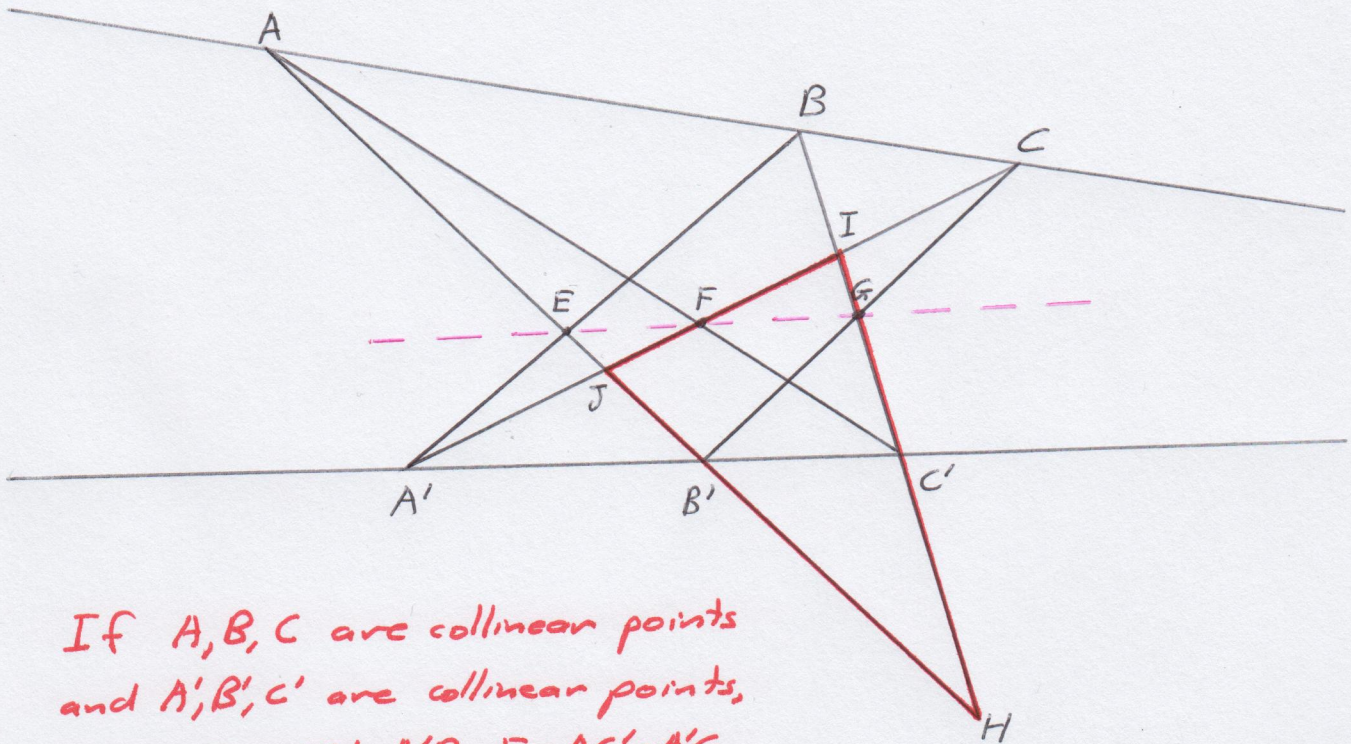 A
B
C
I
E
F
G
J
A'
B'
C'
H
If A, B, C are collinear points
and A', B', C' are collinear points,
A'B E AC' A'C